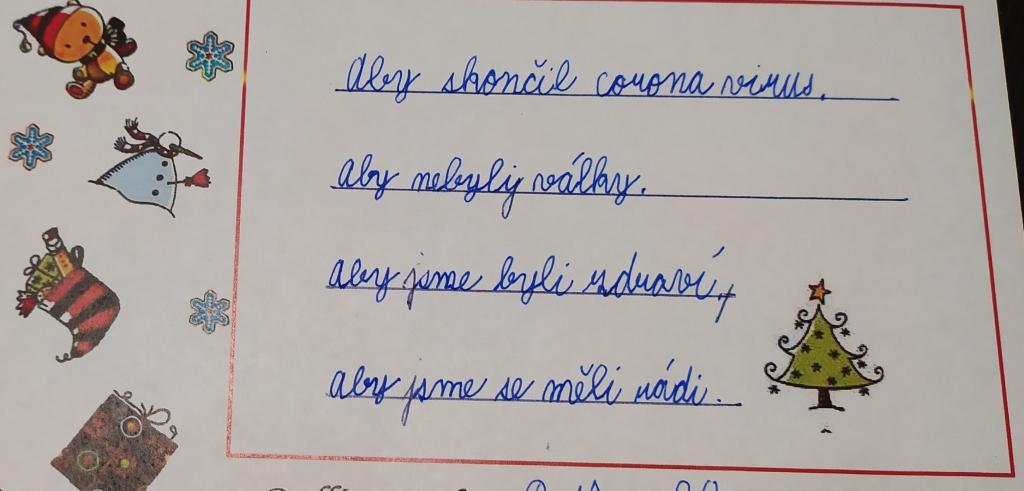 Aby skončil corona virus.
Aby nebyly války.
aby jsme byli zdraví,
aby jsme se měli rádi.